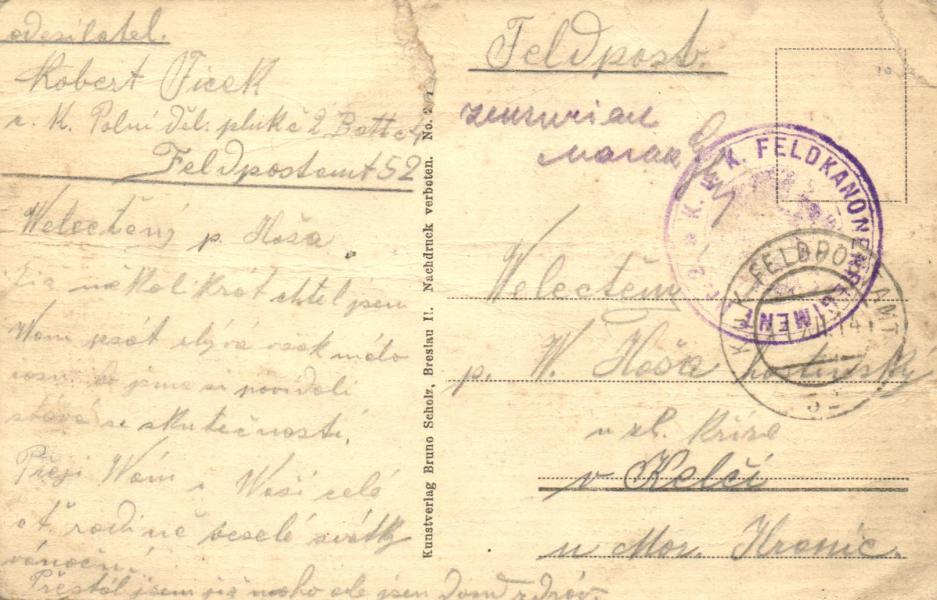 odesílatel.
Robert Ticek
c. K. Polní děl. pluk č 2 Batt 4
Feldpostamt 52
Welectěný p. Hoša
několikrát chtel jsem
Wam psát zbývá vsak málo
jsme si povidali
stává se skutečností.
Přeji Wam i Waší celé
ct. rodině veselé svátky
vánoční.
Přestál jsem již moho ale jsem
Kunstverlag Bruno Scholz, Breslau II. Nachdruck verboten. No.
Feldpost.
zensuriert
K. u. K. FELDKANONENREGIMENT
K. u. K. FELDPOSTAMT
52
Welectěný
p. W. Hoša hostinský
u zl. Kříže
v Kelči
u Mor. Hranic.